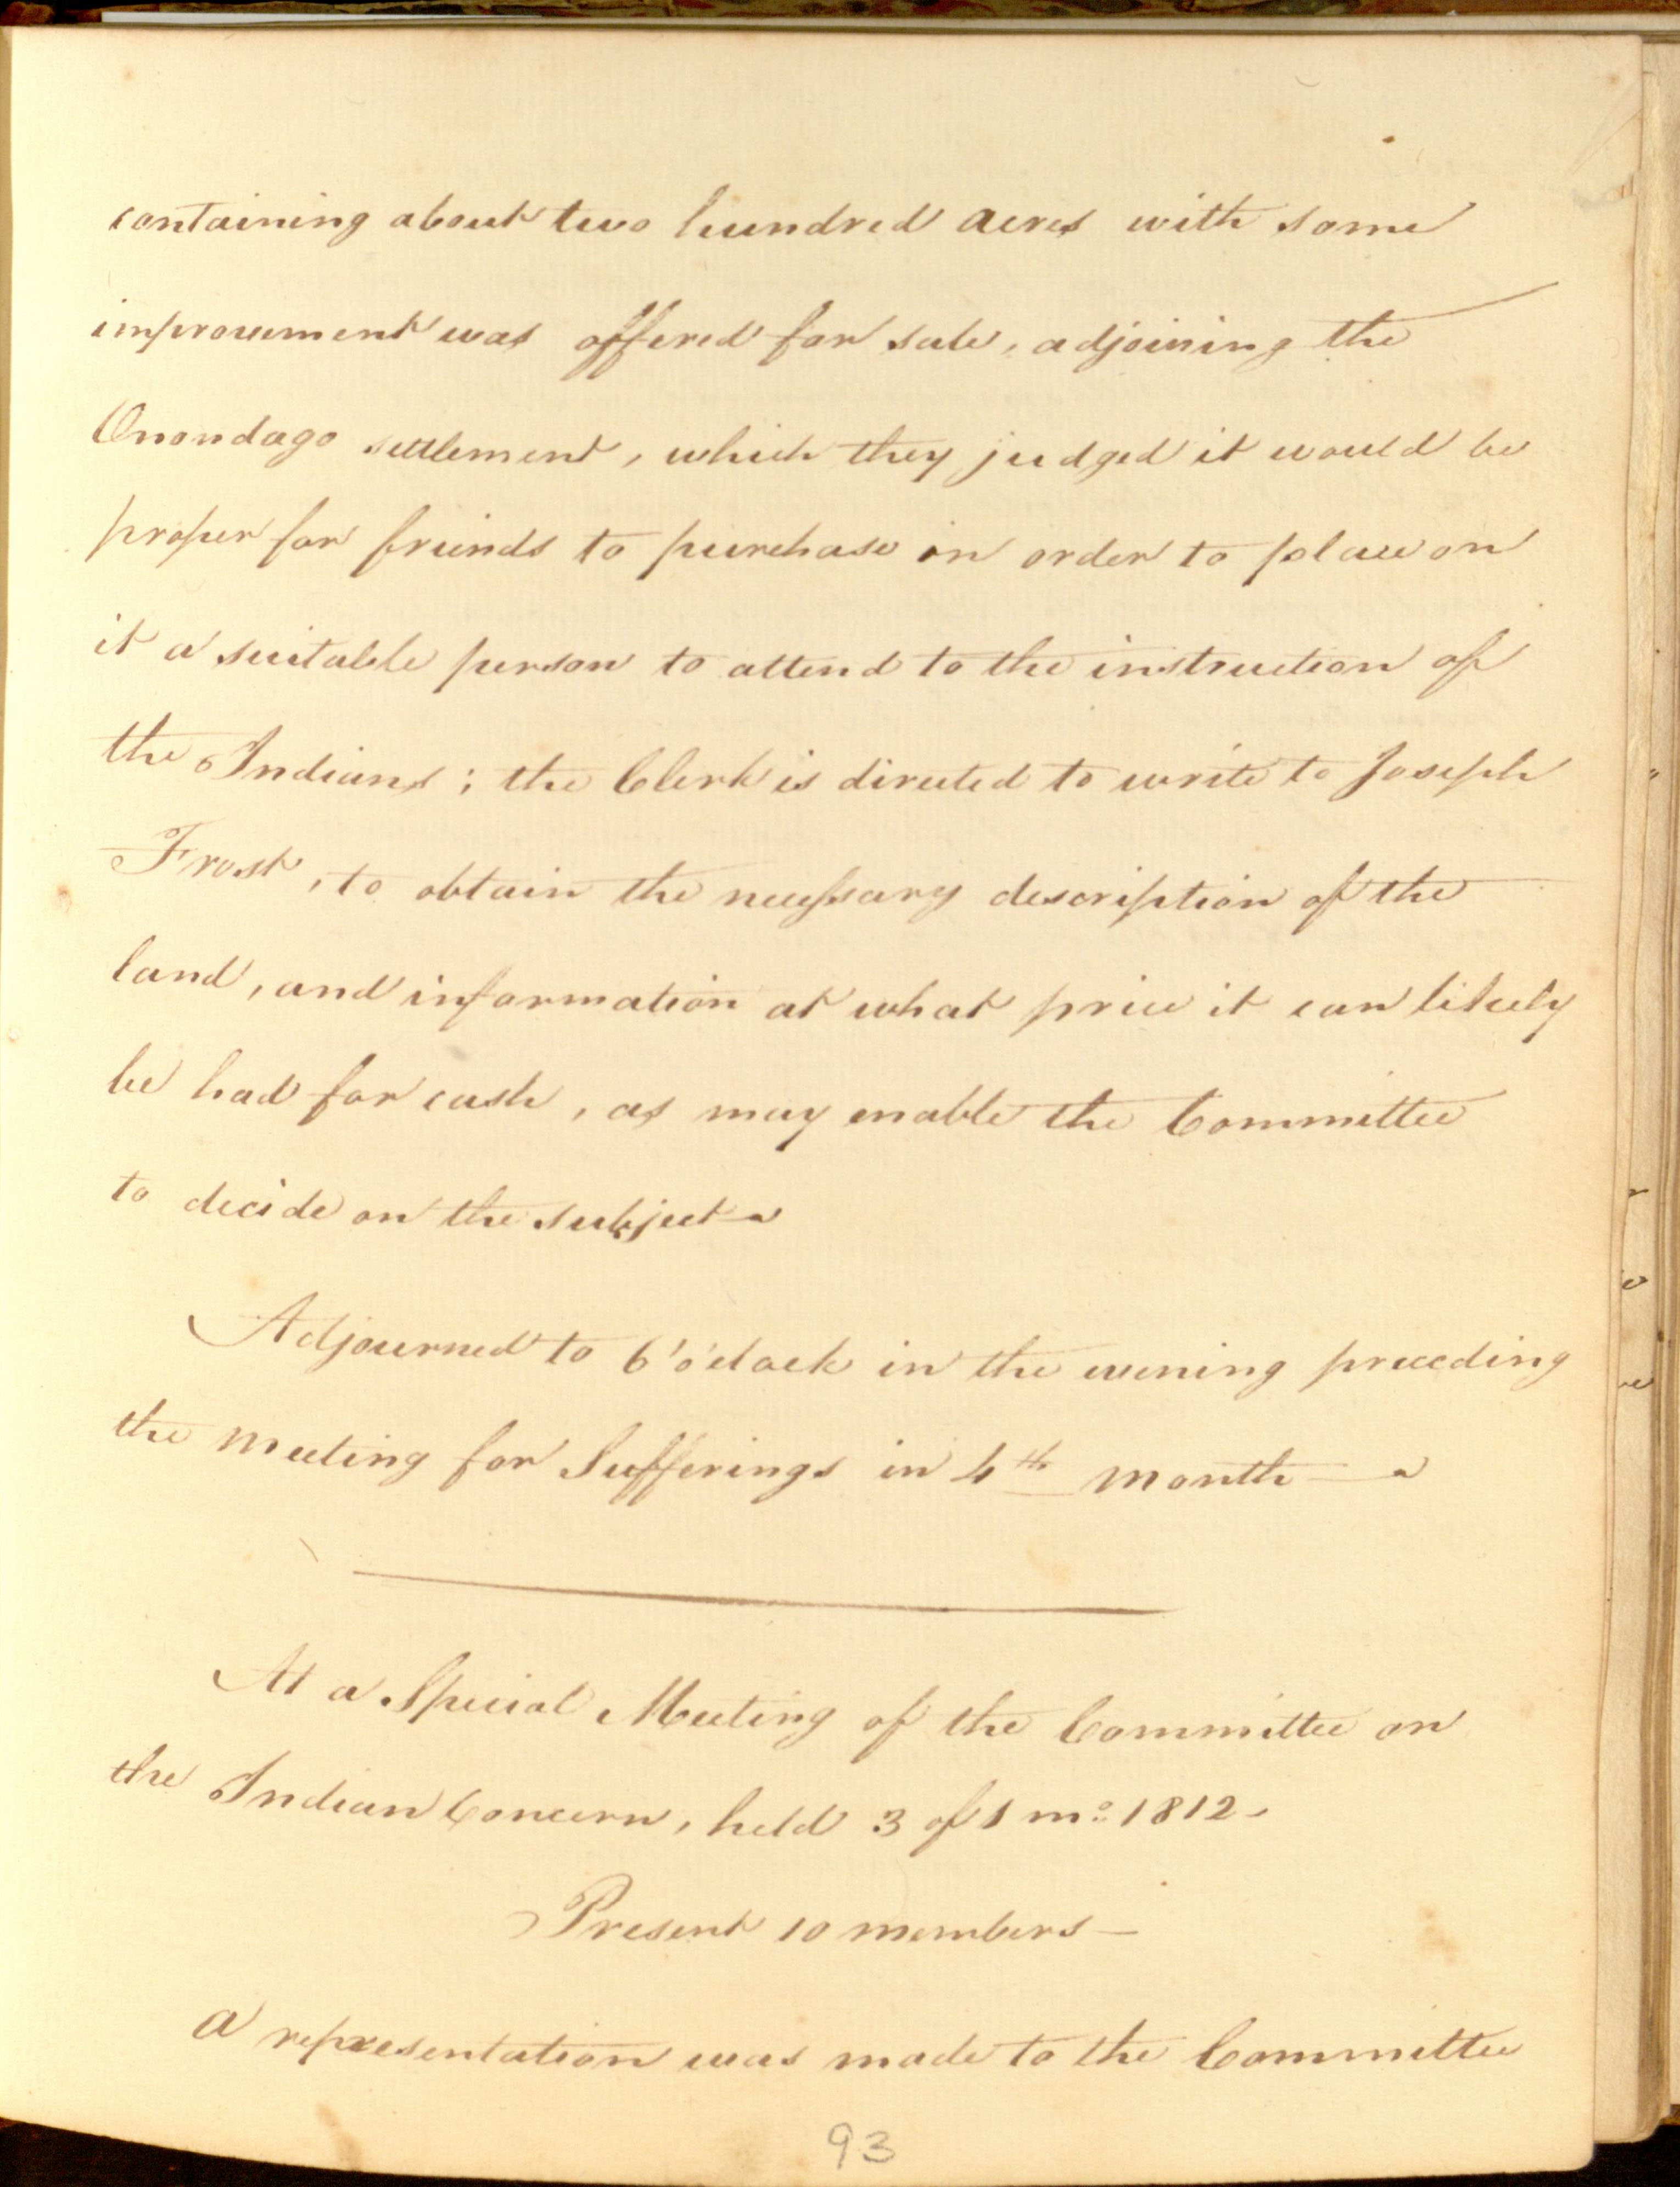 containing about two hundred acres with some
improvement was offered for sale, adjoining the
Onondago settlement, which they judged it would be
proper for friends to purchase in order to place on
it a suitable person to attend to the instruction of
the Indians; the Clerk is directed to write to Joseph
Frost, to obtain the necessary description of the
land, and information at what price it can likely
be had for cash, as may enable the Committee
to decide on the subject
Adjourned to 6 o'clock in the evening preceding
the Meeting for Sufferings in 4th month
At a Special Meeting of the Committee on
the Indian Concern, held 3 of 1 mo. 1812
Present 10 members
a representation was made to the Committee
93